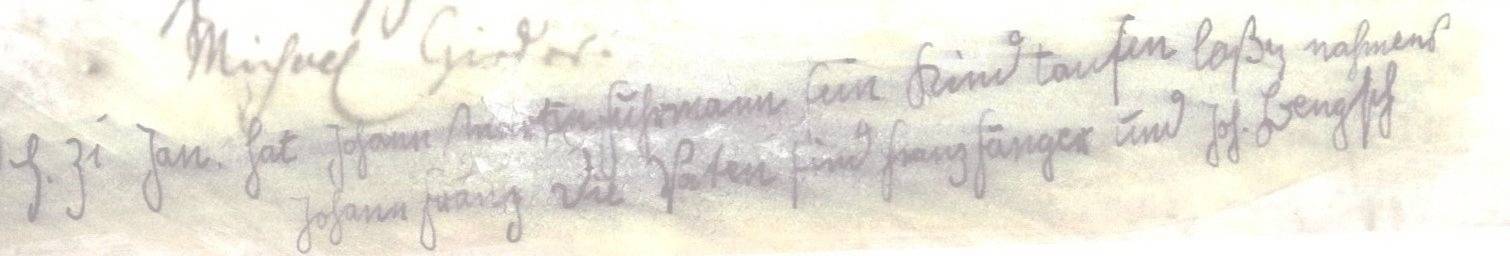 Michael Girdor.
d. 31 Jan. hat Johann Martin Fuhrmann sein Kind taufen laßen nahmens
Johann Frantz die Paten sind Frantz Fänger und Joh. Bengsch